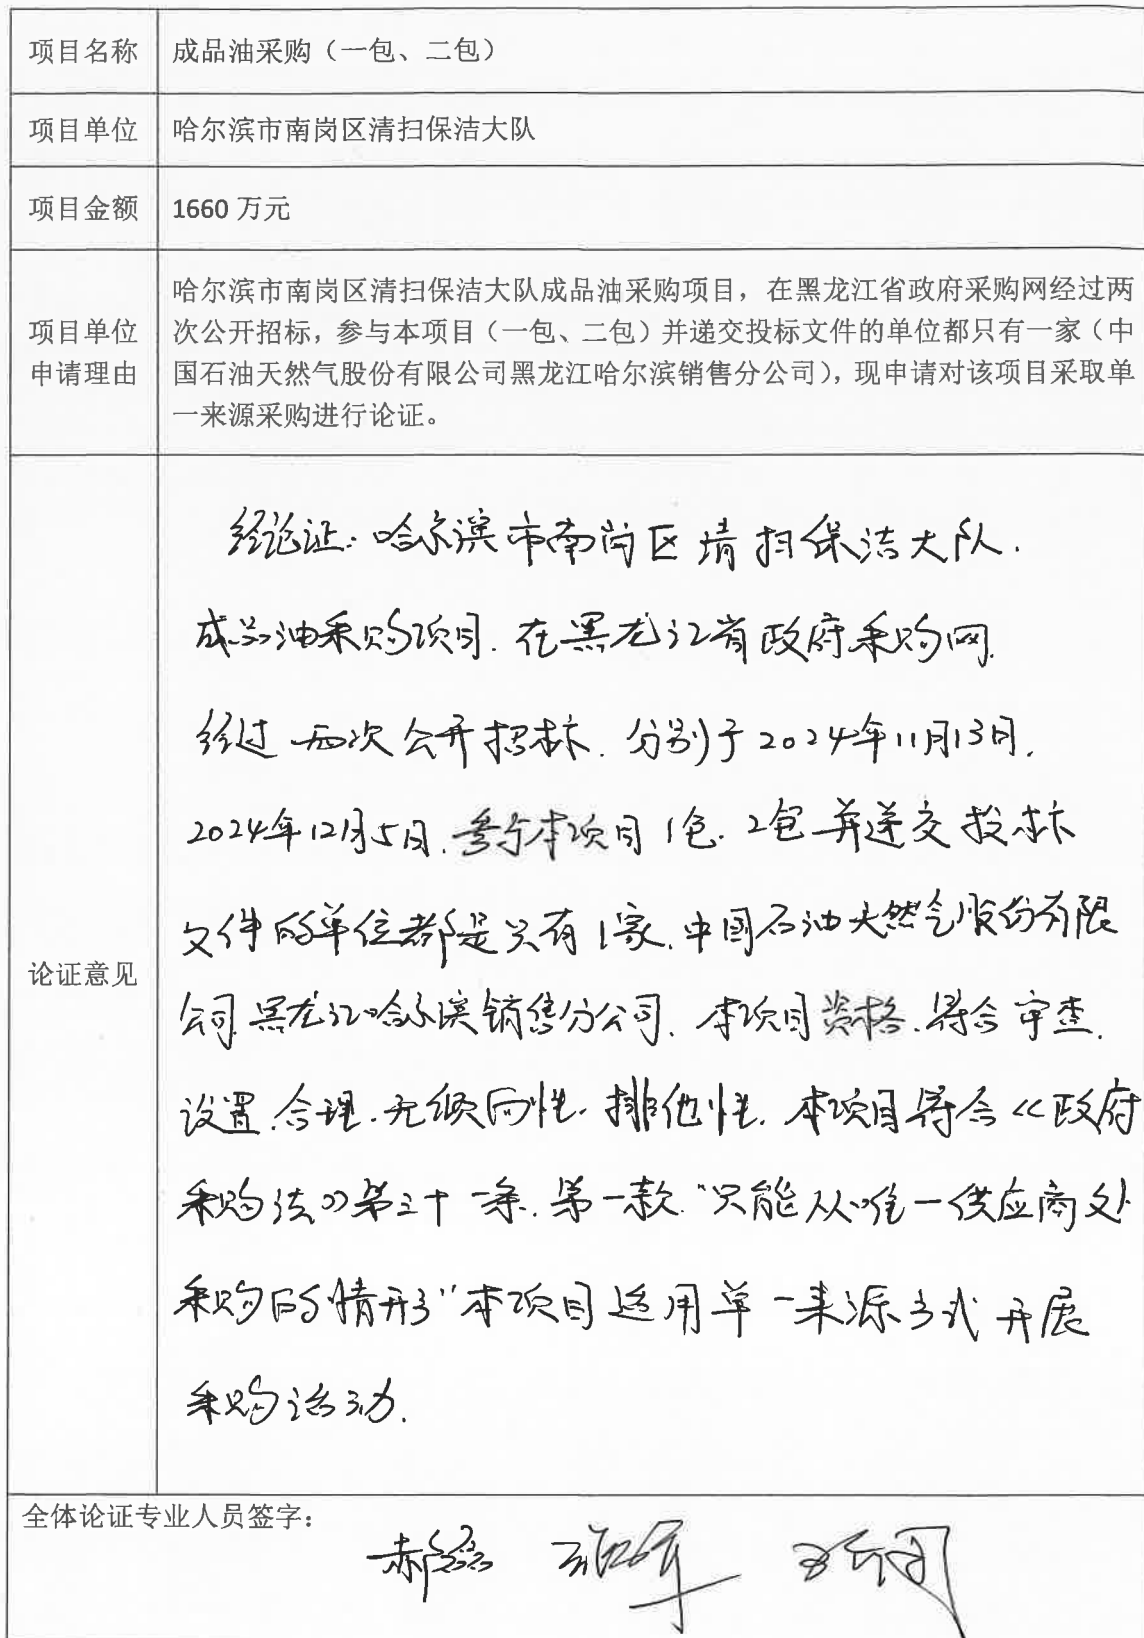 项目名称
成品油采购（一包、二包）
项目单位
哈尔滨市南岗区清扫保洁大队
项目金额
1660 万元
项目单位
申请理由
哈尔滨市南岗区清扫保洁大队成品油采购项目，在黑龙江省政府采购网经过两
次公开招标，参与本项目（一包、二包）并递交投标文件的单位都只有一家（中
国石油天然气股份有限公司黑龙江哈尔滨销售分公司），现申请对该项目采取单
一来源采购进行论证。
论证意见
经论证：哈尔滨市南岗区清扫保洁大队.
成品油采购项目.在黑龙江省政府采购网.
经过两次公开招标.分别于2024年11月13日.
2024年12月5日.参与本项目1包.2包并递交投标
文件的单位都是只有1家.中国石油天然气股份有限
公司黑龙江哈尔滨销售分公司.本项目资格.符合审查.
设置合理.无倾向性.排他性.本项目符合《政府
采购法》第三十一条.第一款“只能从唯一供应商处
采购的情形”本项目适用单一来源方式开展
采购活动.
全体论证专业人员签字：
郝磊